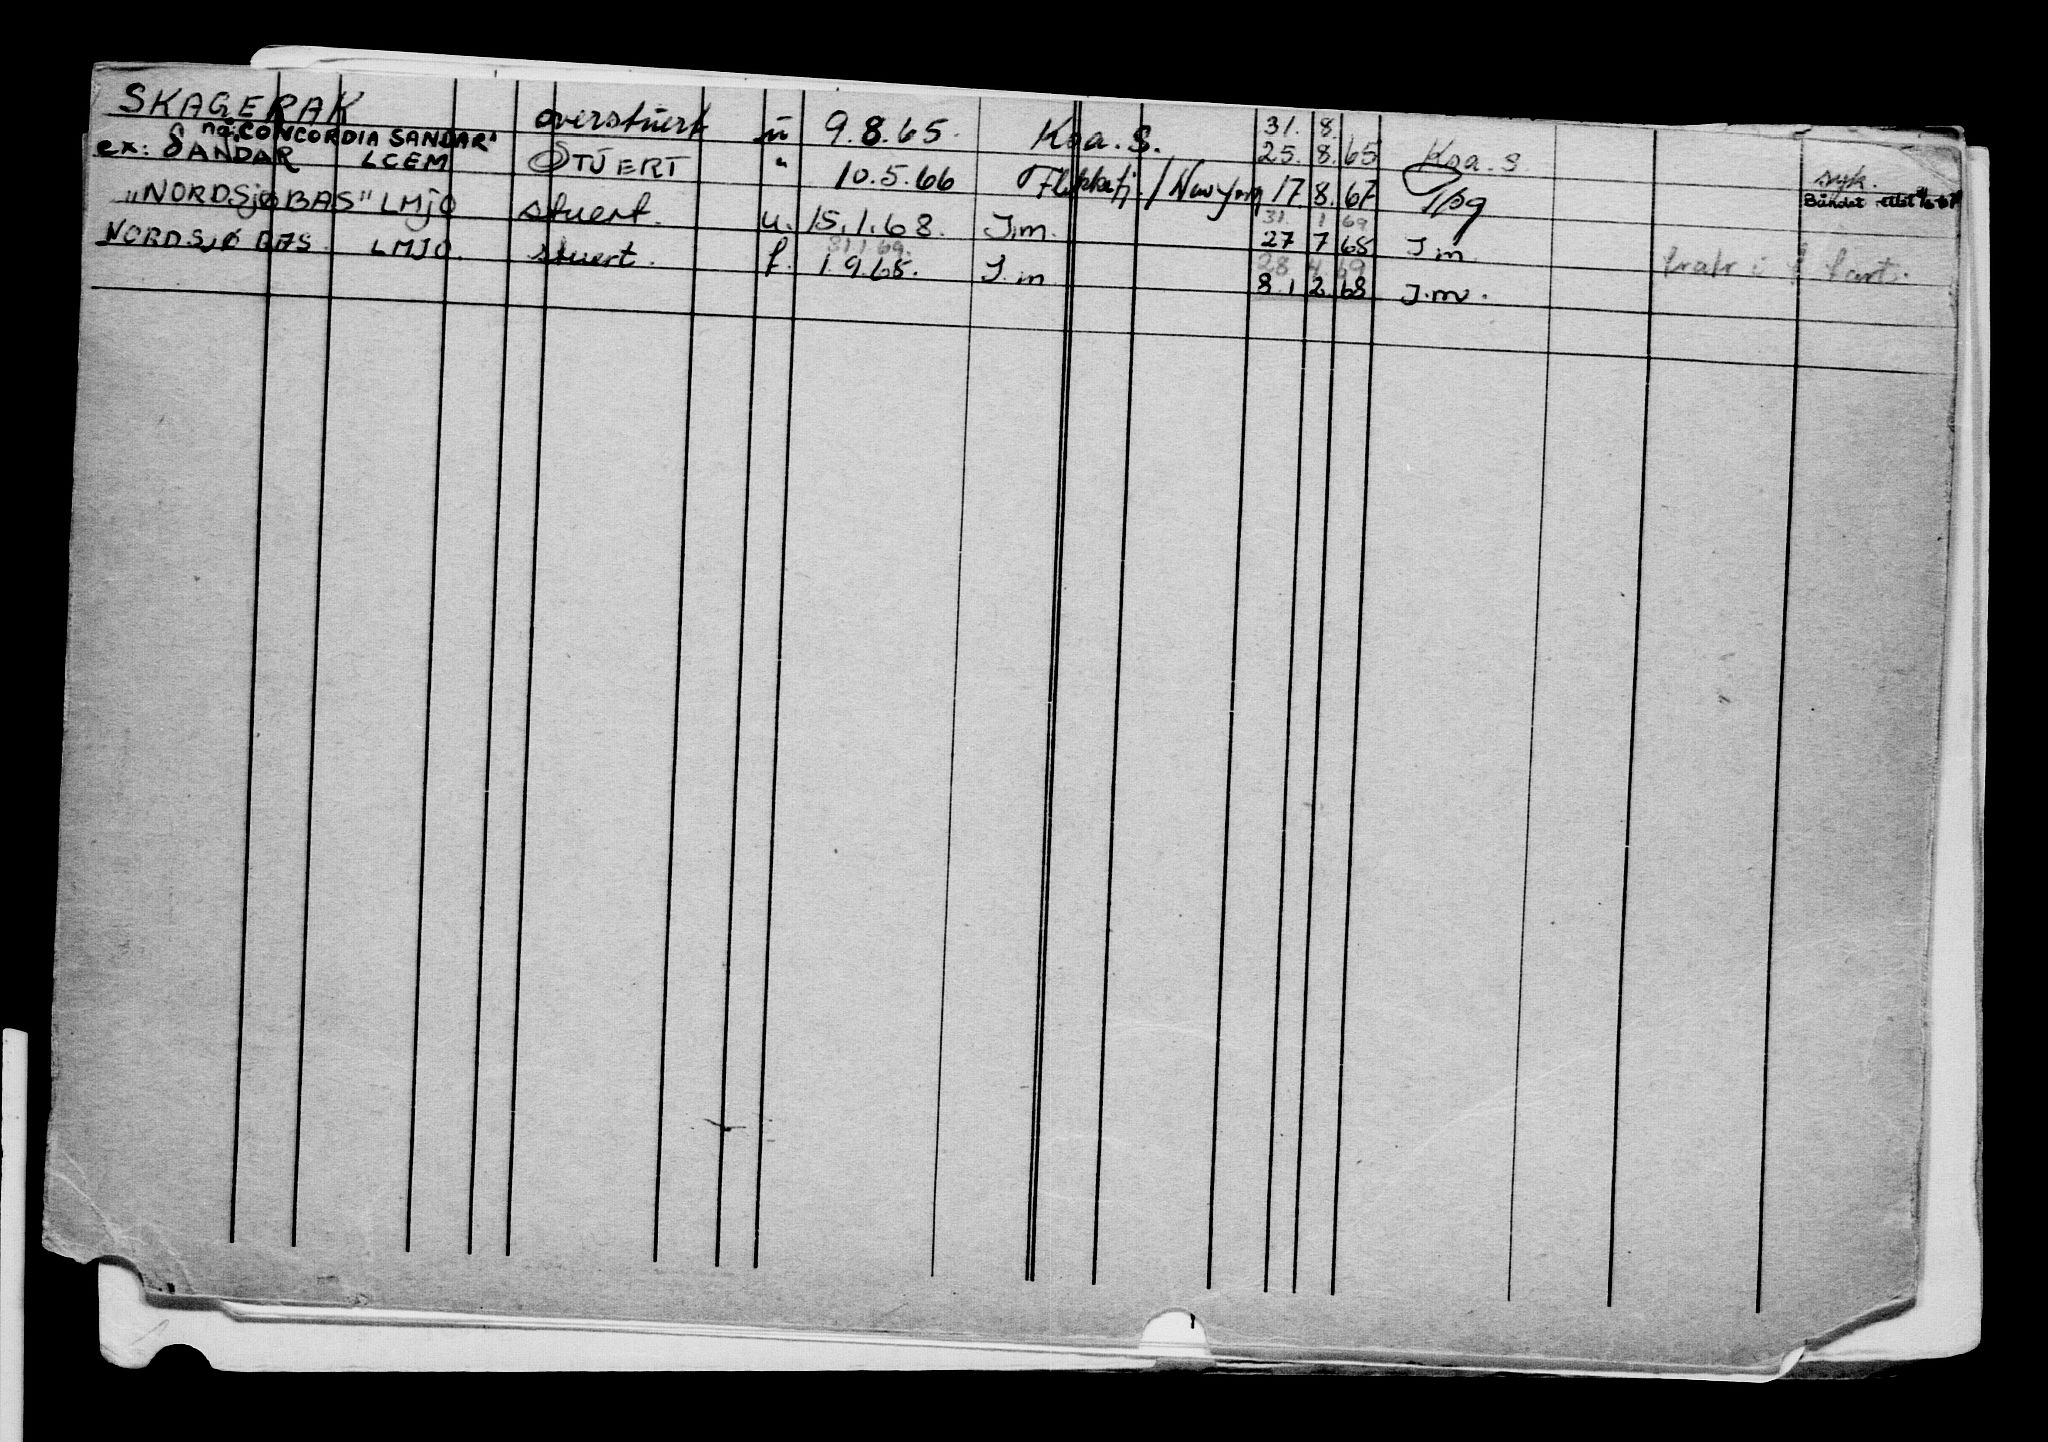 SKAGERAK overstuert u 9.8.65. Krsa.S. 31. 8.
25. 8. 65 Krsa.S. syk.
nå: "CONCORDIA SANDAR"
ex: SANDAR LCEM STUERT " 10.5.66 / New York 17. 8. 67
"NORDSJØBAS" LMJO stuert. u. 15.1.68. I.m. 31. 1 69
27 7 68 I.m
31.1.69.
NORDSJØ BAS. LMJO. stuert. f. 1.9.68. I.m 28 4 69
8.12.68 I.m. i fart.